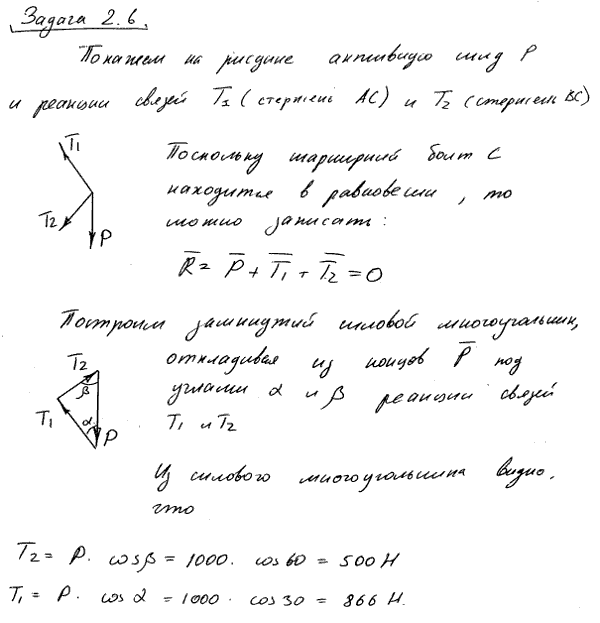 Задача 2.6.
Покажем на рисунке активную силу P
и реакции связей T1 (стержень AC) и T2 (стержень BC)
T̅1
T2
P
Поскольку шарнирный болт C
находится в равновесии, то
можно записать:
R̅ = P̅ + T̅1 + T̅2 = 0
Построим замкнутый силовой многоугольник,
откладывая из концов P̅ под
углами α и β реакции связей
T1 и T2
T̅2
β
T1
α
P
Из силового многоугольника видно,
что
T2 = P · cosβ = 1000 · cos60 = 500 Н
T1 = P · cos α = 1000 · cos30 = 866 Н.